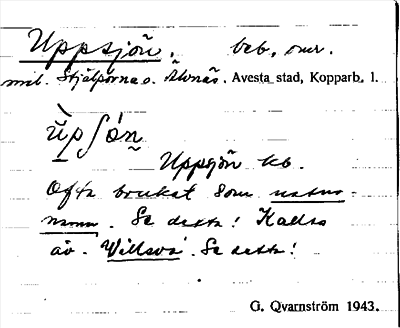 Uppsjön. beb. omr.
mil. Stjälporna o. Älvnäs. Avesta stad, Kopparb. l.
Uppsjön kb.
Ofta brukat som natur-
namn. Se detta! Kallas
äv. Se detta!
G. Qvarnström 1943.